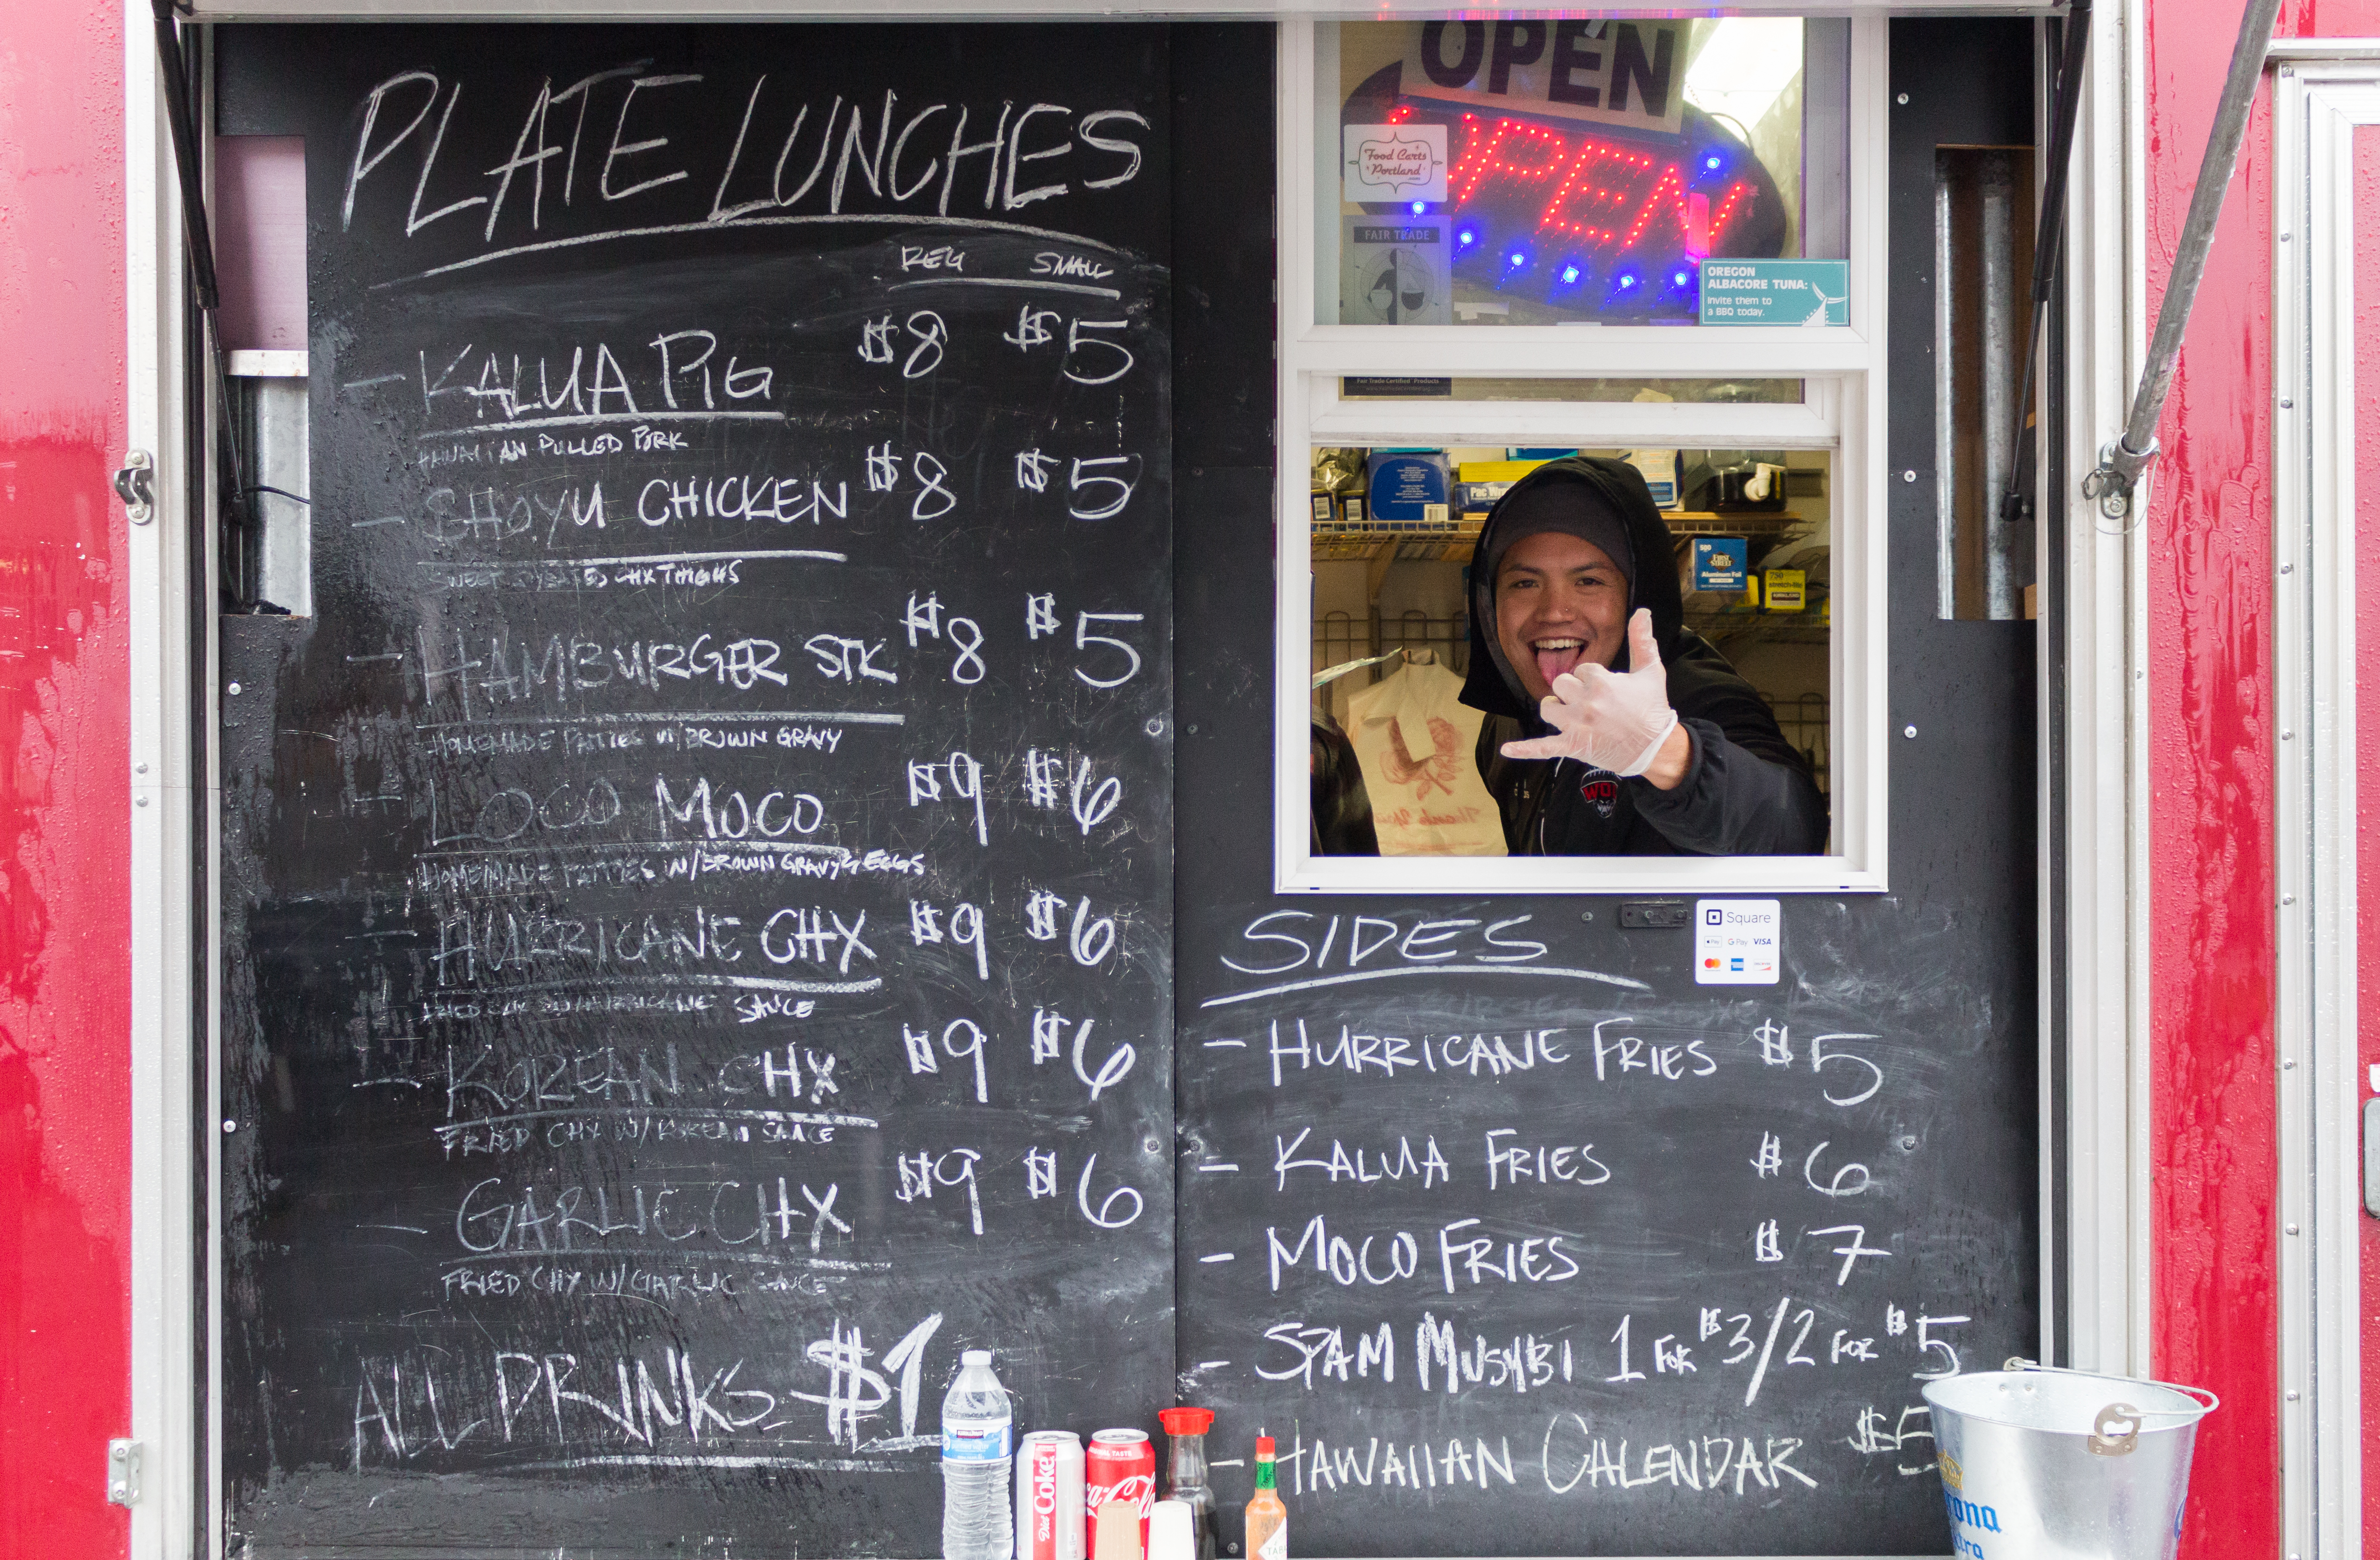 PLATE LUNCHES
REG SMALL
- KALUA PIG $8 $5
HAWAIIAN PULLED PORK
- SHOYU CHICKEN $8 $5
SWEET CHX THIGHS
- HAMBURGER STK $8 $5
HOMEMADE PATTIES W/BROWN GRAVY
- LOCO MOCO $9 $6
HOMEMADE PATTIES W/BROWN GRAVY & EGGS
- HURRICANE CHX $9 $6
FRIED CHX W/HURRICANE SAUCE
- KOREAN CHX $9 $6
FRIED CHX W/KOREAN SAUCE
- GARLIC CHX $9 $6
FRIED CHX W/GARLIC SAUCE
ALL DRINKS $1
OPEN
OPEN
Food Carts
Portland
FAIR TRADE
OREGON
ALBACORE TUNA:
Invite them to
a BBQ today.
Fair Trade Certified Products
Aluminum Foil
750
WOU
Thank You
Square
Pay G Pay VISA
SIDES
- HURRICANE FRIES $5
- KALUA FRIES $6
- MOCO FRIES $7
- SPAM MUSUBI 1 FOR $3/2 FOR $5
- HAWAIIAN CALENDAR $5
Diet Coke
Coca-Cola